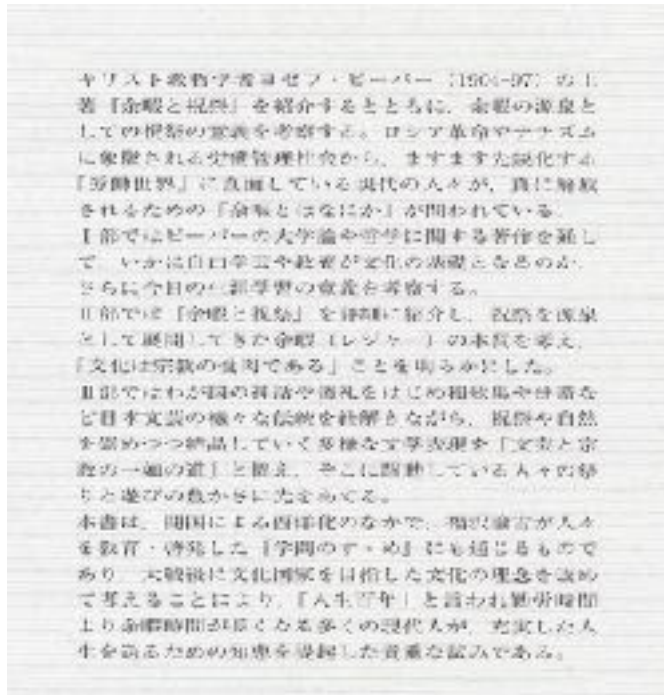 キリスト教哲学者ヨゼフ・ピーパー（1904-97）の主
著『余暇と祝祭』を紹介するとともに、余暇の源泉と
しての祝祭の意義を考察する。ロシア革命やナチズム
に象徴される労働管理社会から、ますます先鋭化する
「労働世界」に直面している現代の人々が、真に解放
されるための「余暇とはなにか」が問われている。
Ⅰ部ではピーパーの大学論や哲学に関する著作を通し
て、いかに自由学芸や教養が文化の基礎となるのか、
さらに今日の生涯学習の意義を考察する。
Ⅱ部では『余暇と祝祭』を詳細に紹介し、祝祭を源泉
として展開してきた余暇（レジャー）の本質を考え、
「文化は宗教の世俗である」ことを明らかにした。
Ⅲ部ではわが国の神話や儀礼をはじめ和歌や俳諧な
ど日本文芸の様々な伝統を紐解きながら、祝祭や自然
を崇めつつ結晶していく多様な文学表現を「文芸と宗
教の一如の道」と捉え、そこに躍動している人々の祭
りと遊びの豊かさに光をあてる。
本書は、開国による西洋化のなかで、福沢諭吉が人々
を教育・啓発した『学問のすゝめ』にも通じるもので
あり、大戦後に文化国家を目指した文化の理念を改め
て考えることにより、「人生百年」と言われ勤労時間
より余暇時間が長くなる多くの現代人が、充実した人
生を送るための知恵を提起した貴重な試みである。